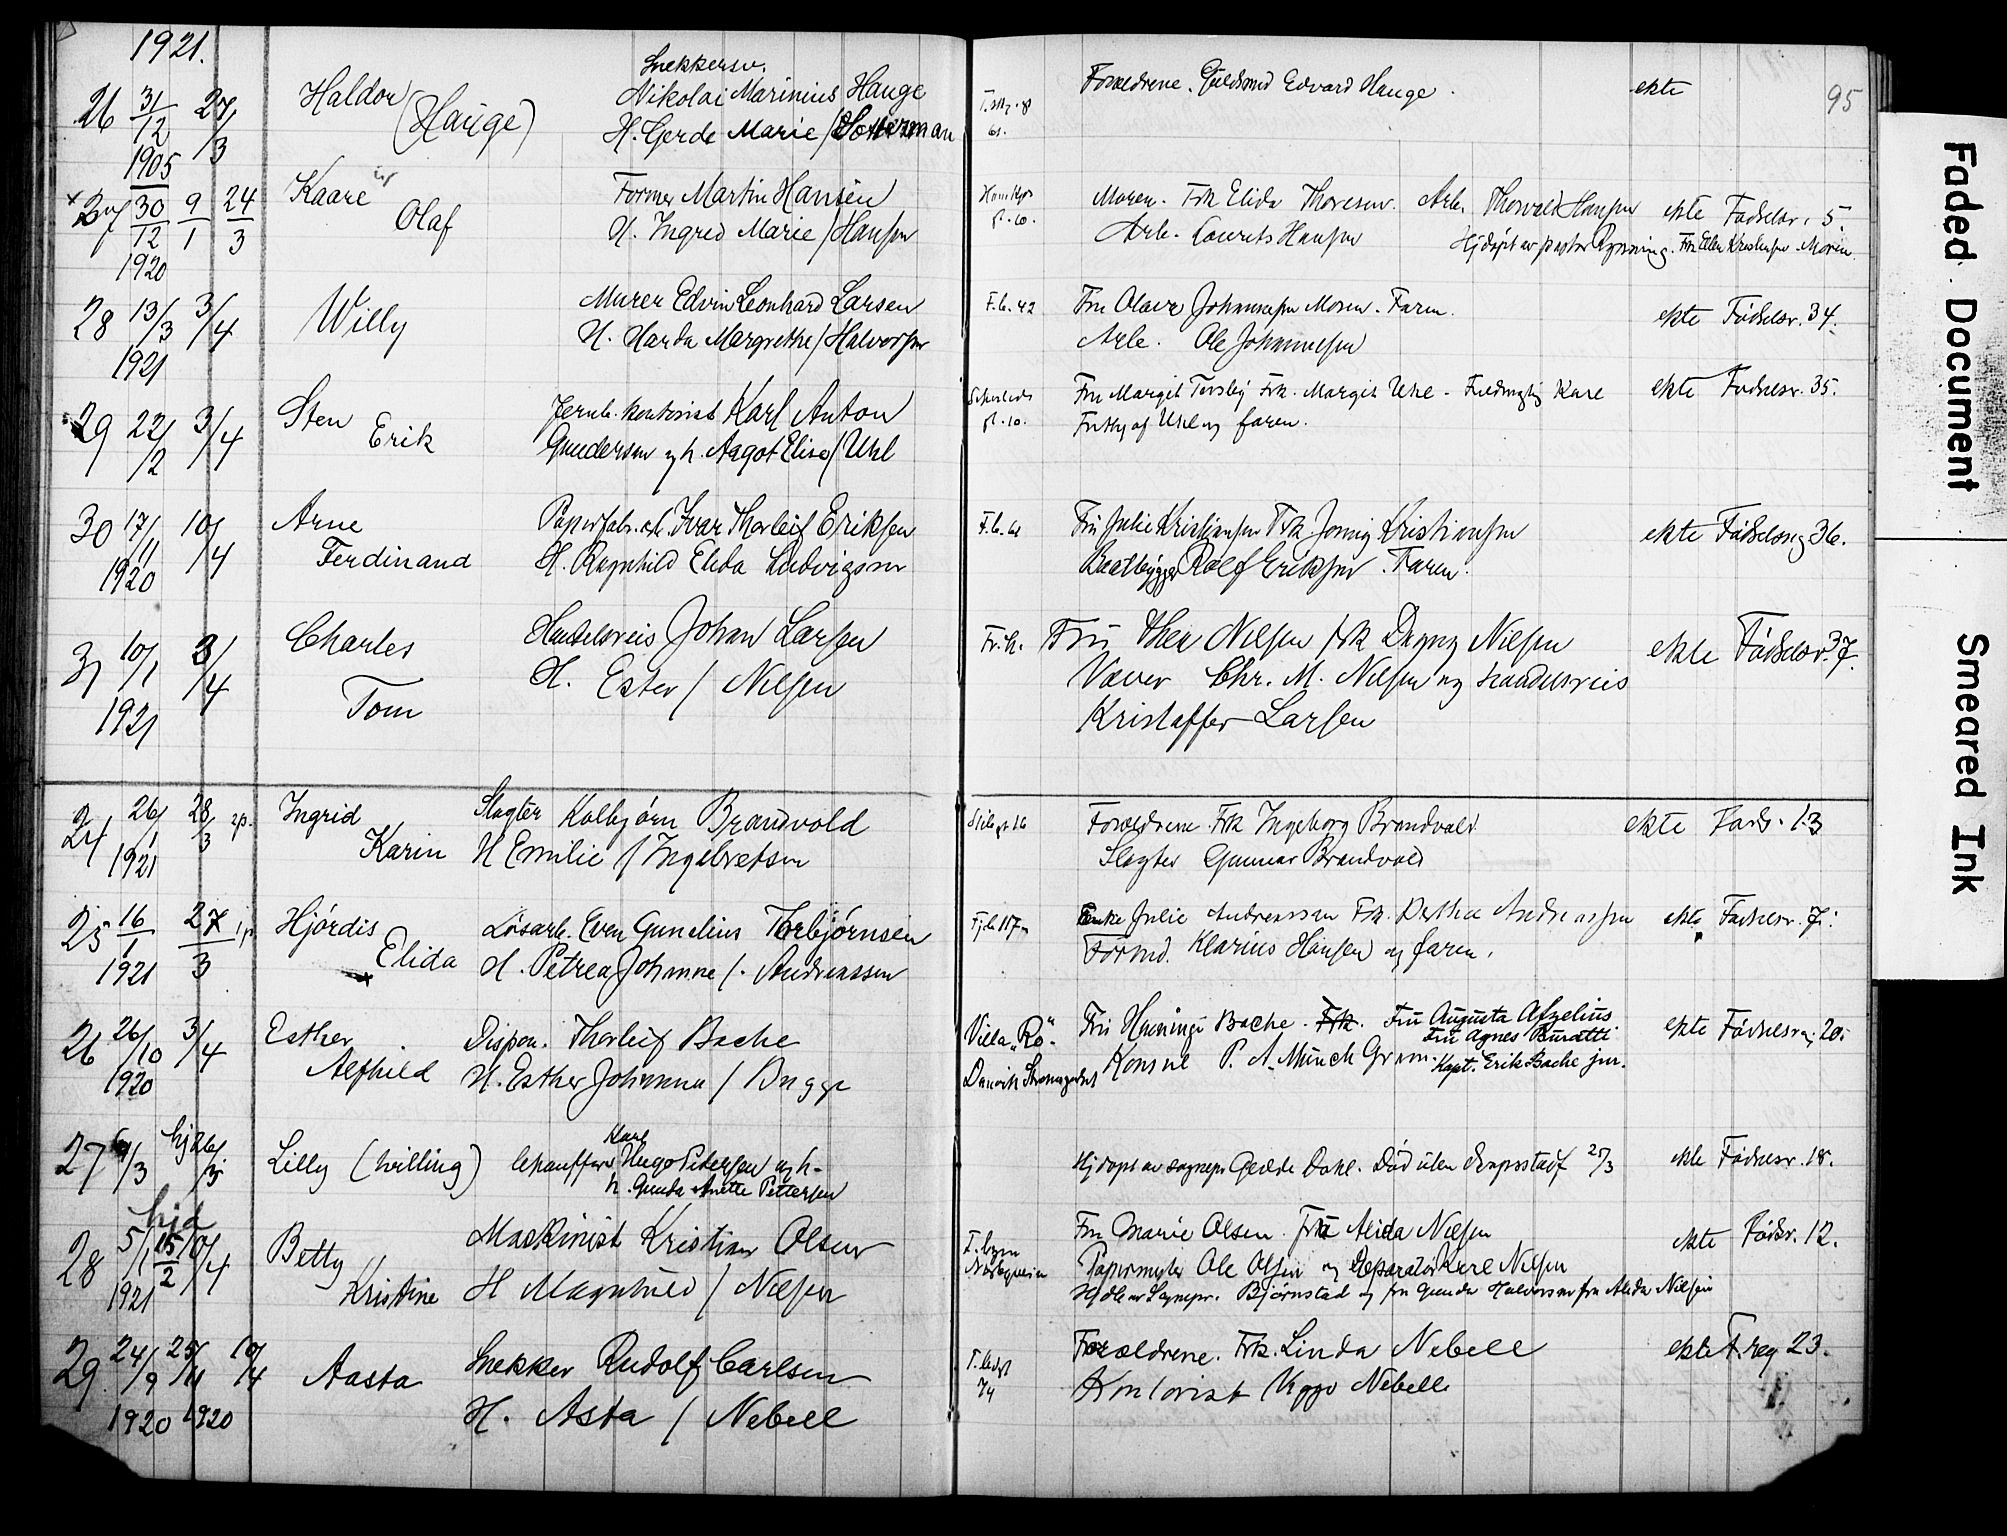 1921.
95
26 31/12 1905 27/3 Haldor (Hauge) Snekkersv. Nikolai Marinius Hauge
H. Gerda Marie /
Foræeldrene. Guldsmed Edvard Hauge. ekte
27 30/12 1920 9/1 24/3 Kaare Olaf Former Martin Hansen
H. Ingred Marie / Hansen
Moren. Frk Elida Thoresen. Arb. Thorvald Hansen ekte Fødselsr. 5.
Arb. Laurits Hansen Hjdøpt av pastor Rynning. Moren
28 13/3 1921 3/4 Willy Murer Edvin Leonhard Larsen
H. Harda Margrethe / Halvorsen
F.b. 42 Fru Olava Johannesen Moren. Faren. ekte Fødselsr. 34.
Arb. Ole Johannesen
29 22/2 3/4 Sten Erik Jernb. kontorist Karl Anton
Gundersen og h. Aagot Elise / Uhl
gt. 10. Fru Margit Tersby Frk. Margit Uhl - Kare ekte Fødselsr. 35.
Uhl og faren.
30 17/11 1920 10/4 Arne Ferdinand Papirfabr. arb. Ivar Thorleif Eriksen
H. Ragnhild Elida Ludvigsen
F.b. 61 Fru Julie Kristiansen Frk Jenny Kristiansen ekte Fødselsreg 36.
Baatbygger Rolf Eriksen. Faren.
31 10/1 1921 3/4 Charles Tom Handelsreis Johan Larsen
H. Ester / Nilsen
Fr.h. Fru Thea Nilsen frk Dagny Nilsen ekte Fødselsr. 37.
Væver Chr. M. Nilsen og handelsreis
Kristoffer Larsen
24 26/1 1921 28/3 Ingrid Karin Slagter Kolbjørn Brandvold
H Emilie / Ingebretsen
gt 16 Foræeldrene Frk Ingeborg Brandvold ekte Føds. 13
Slagter Gunnar Brandvold
25 16/1 1921 27/3 Hjørdis Elida Løsarb. Even Gunelius Thorbjørnsen
H. Petrea Johanne /. Andreassen
Fj.b 117 Enke Julie Andreassen Frk. Berthea Andreassen ekte Fødselsr. 7.
Formd. Klarius Hansen og faren.
26 26/10 1920 3/4 Esther Alfhild Dispon. Thorleif Bache
H. Esther Johanna / Bugge
Villa "Ro" Fru Henninge Bache. Frk. Fru Augusta Afzelius
Fru Agnes Buratti ekte Fødselsreg 20.
Danvik Konsul P. A. Munch Gram. Kapt. Erik Bache jun.
27 6/3 hj 26/3 Lilly (tvilling) Chauffør Karl Hugo Petersen og h-
h. Gunda Anette Pettersen
Hjdøpt av sognepr Gerde Dahl. Død uten daapsstadf 25/3 ekte Fødselsr. 18.
28 5/1 1921 hjd 15/2 10/4 Betty Kristine Maskinist Kristian Olsen
H Magnhild / Nilsen
Fru Marie Olsen. fru Alida Nilsen ekte Fødsr. 12.
Papirmester Ole Olsen og Reparatør Karl Nilsen
Hjdb av Sognepr. Bjørnstad og fru Gunda Halvorsen fru Alida Nilsen
29 24/9 1920 25/11 1920 10/4 Aasta Snekker Rudolf Carlsen
H. Asta / Nebell
74 Foræeldrene. Frk. Linda Nebell ekte F. reg 23.
Kontorist Viggo Nebell
Faded Document
Smeared Ink